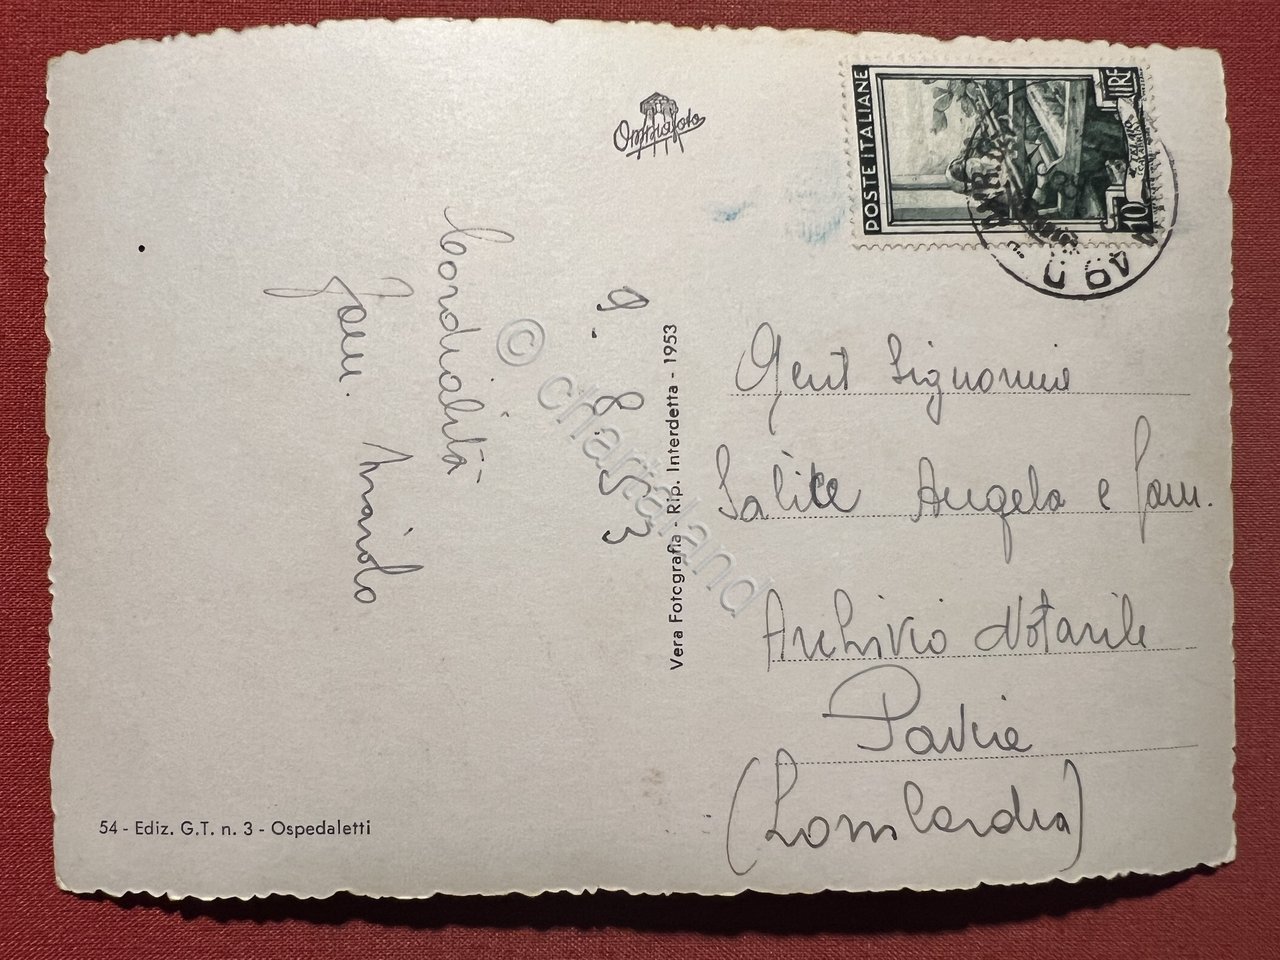 Omniafoto
POSTE ITALIANE
LIRE
10
9. 8. 53
Cordialità
Fam. Mairolo
Vera Fotografia - Rip. Interdetta - 1953
Gent Signorine
Salice Angela e fam.
Archivio Notarile
Pavia
(Lombardia)
54 - Ediz. G.T. n. 3 - Ospedaletti
© chartaland